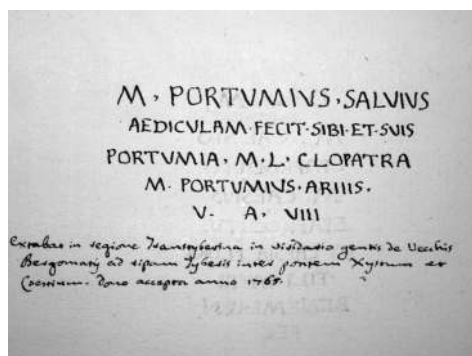 M · PORTVMIVS · SALVIVS
AEDICVLAM · FECIT · SIBI · ET · SVIS
PORTVMIA · M · L · CLOPATRA
M · PORTVMIVS · ARIIIS ·
V · A · VIII
Extabat in regione Transtyberina in viridario gentis de Vecchis
Bergomatij ad ripam Tyberis inter pontem Xystum et
Cestium. dono acceptor anno 1765.